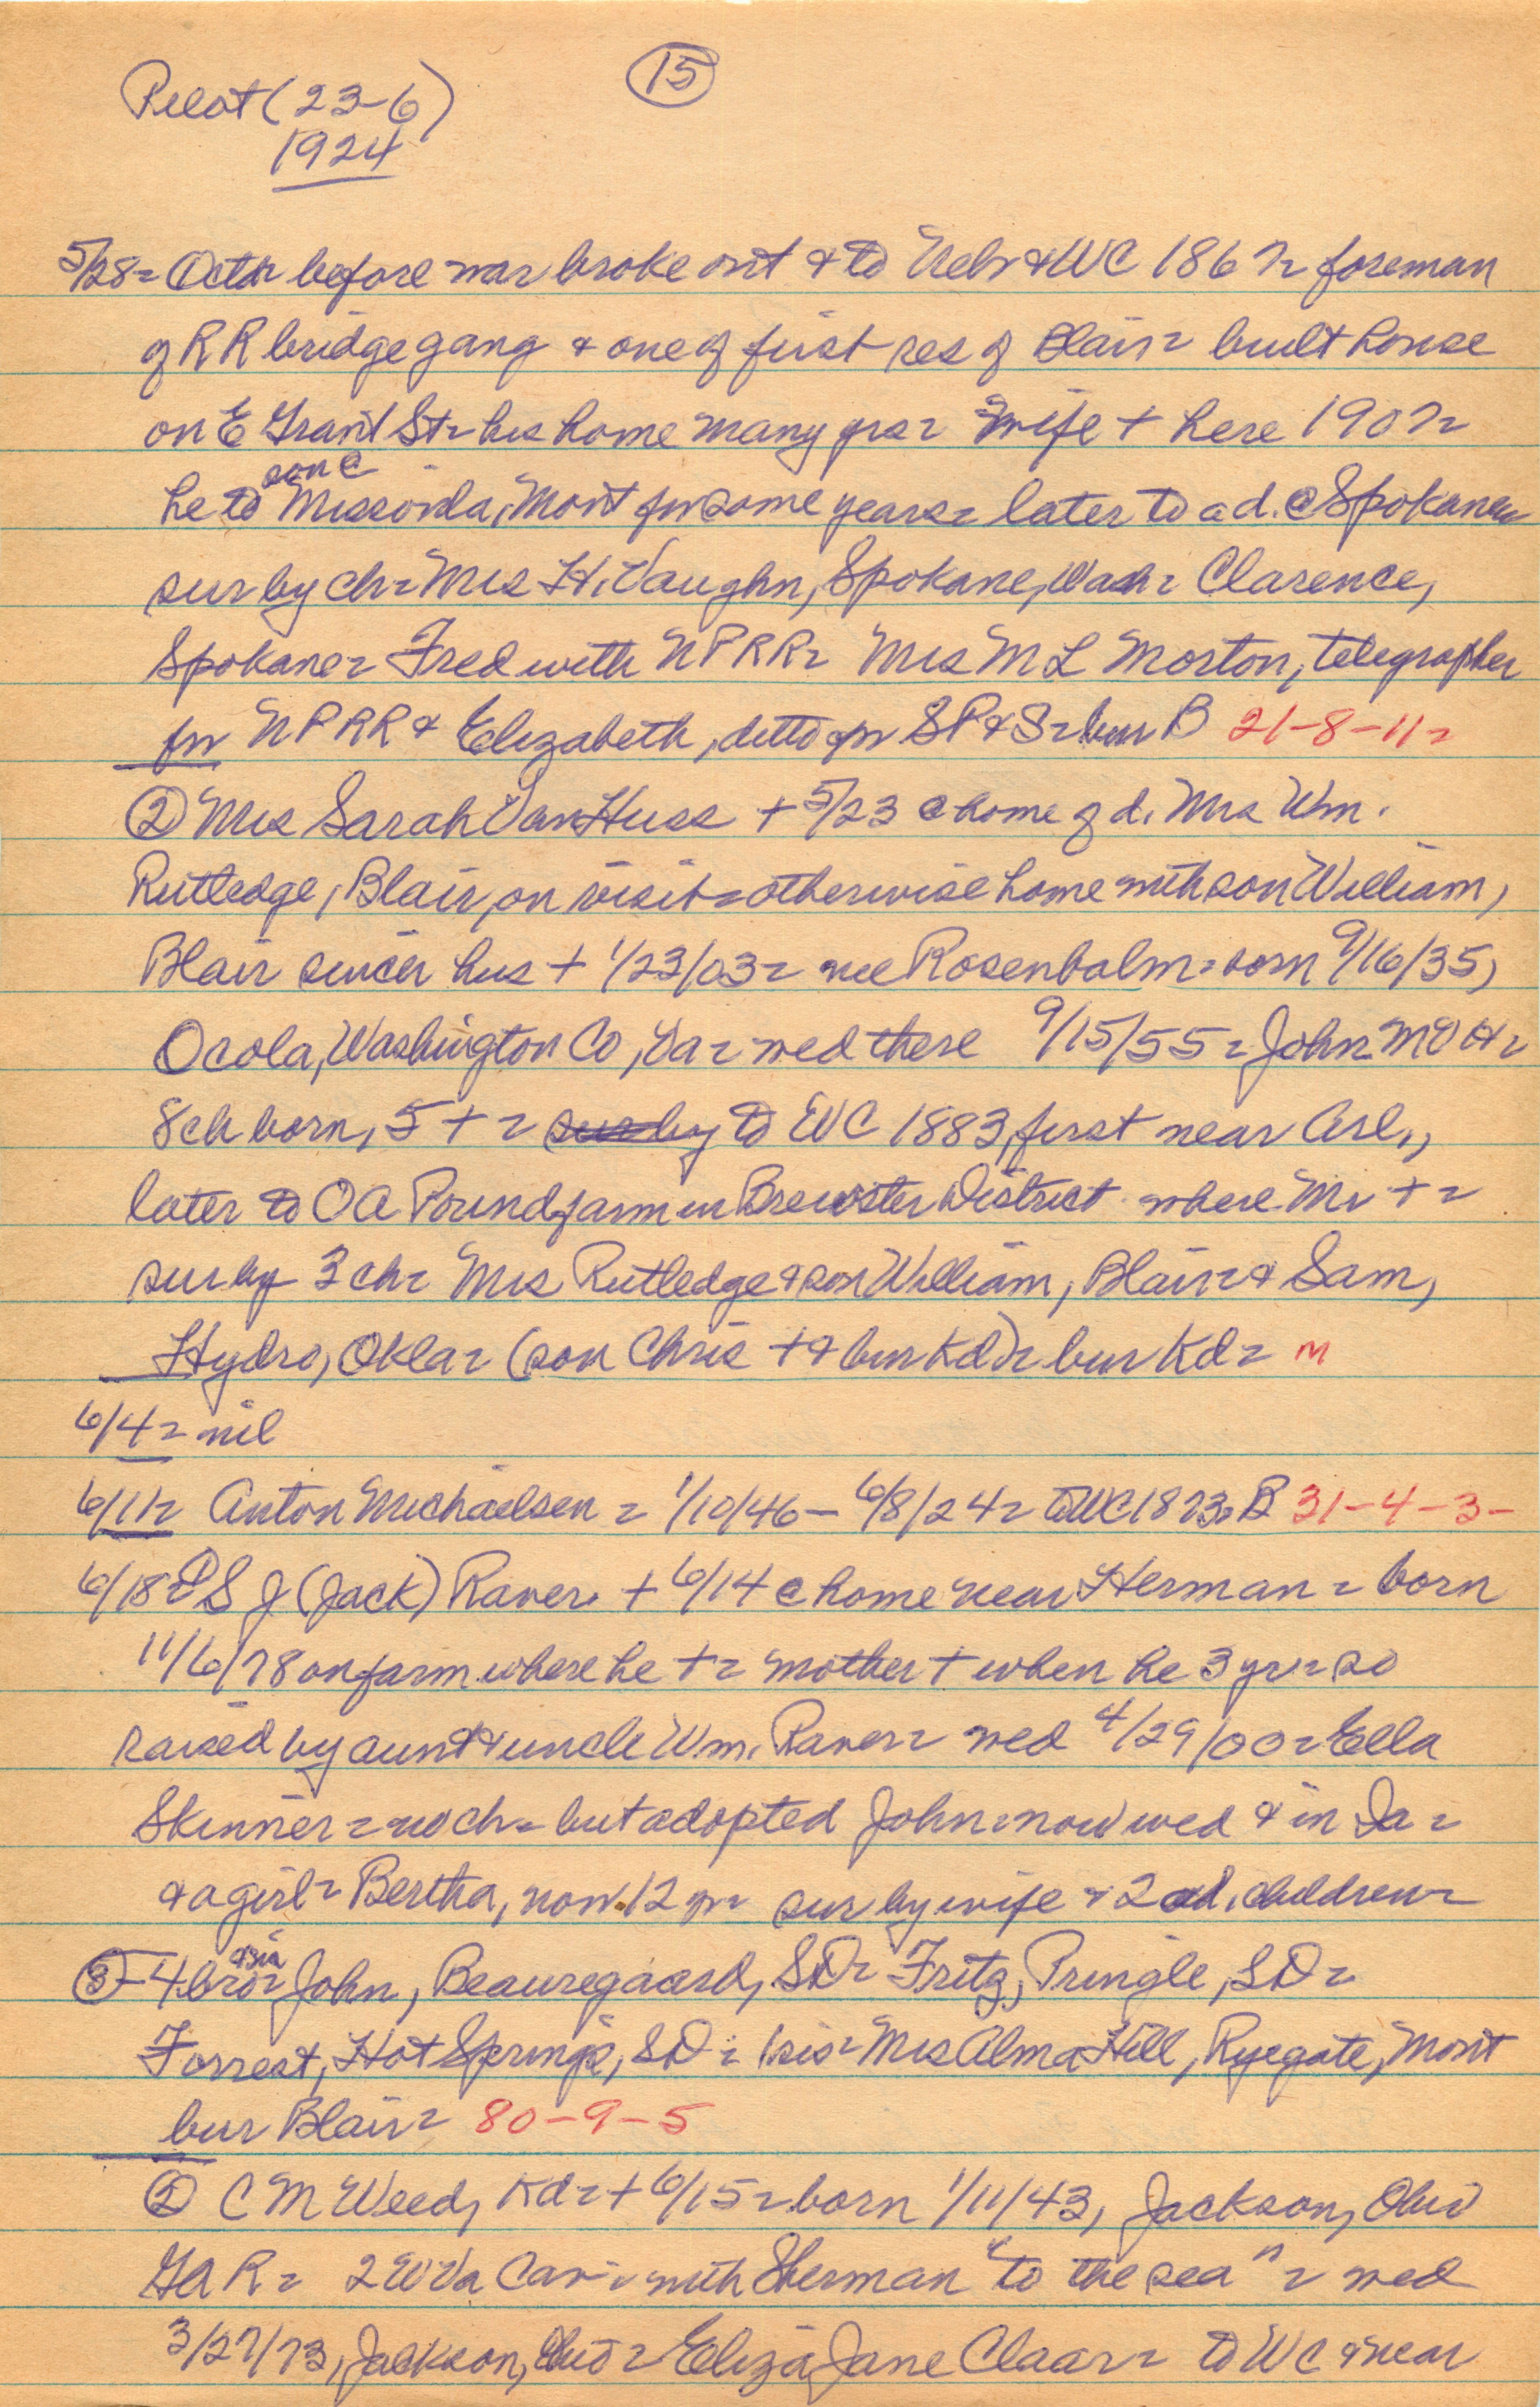 15
Pilot (23-6)
1924
5/28= before war broke out & to Nebr & WC 1867= foreman
of RR bridge gang & one of first res of Blair= built house
on E Grant St= his home many yrs= wife + here 1907=
son @
he to Missoula, Mont for some years= later to a d. @ Spokane=
sur by ch= Mrs H. Vaughn, Spokane, Wash= Clarence,
Spokane= Fred with NPRR= Mrs M L Morton, telegrapher
for NPRR & Elizabeth, ditto for SP&S= bur B 21-8-11=
② Mrs Sarah VanHuss + 5/23 @ home of d. Mrs Wm.
Rutledge, Blair, on visit= otherwise home with son William,
Blair since hus + 1/23/03= nee Rosenbalm= born 9/16/35,
Ocola, Washington Co, Va= wed there 9/15/55= John M V H=
8 ch born, 5 += sur by to WC 1883, first near Arl.,
later to O A Pound farm in Brewster District where Mr +=
sur by 3 ch= Mrs Rutledge & son William, Blair= & Sam,
Hydro, Okla= (son Chris + & bur Kd)= bur Kd= m
6/4= nil
6/11= Anton Michaelsen= 1/10/46- 6/8/24= to WC 1873= B 31-4-3-
6/18= S J (Jack) Raver. + 6/14 @ home near Herman= born
11/6/78 on farm where he += mother + when he 3 yr= so
raised by aunt & uncle Wm. Raver= wed 4/29/00= Ella
Skinner= no ch= but adopted John= now wed & in Ia=
& a girl= Bertha, now 12 yr= sur by wife & 2 ad. children=
4 bro= John, Beauregaard, SD= Fritz, Pringle, SD=
Forrest, Hot Springs, SD= 1 sis= Mrs Alma Hill, Ryegate, Mont
bur Blair= 80-9-5
② C M Weed, Kd= + 6/15= born 1/11/43, Jackson, Ohio
GAR= 2 W Va Cav= with Sherman "to the sea"= wed
3/27/73, Jackson, Ohio= Eliza Jane Claar= to WC & near